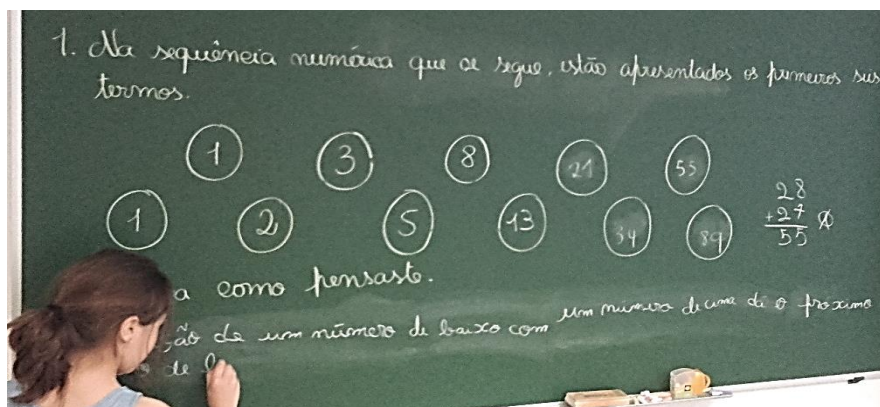 1. Na sequência numérica que se segue, estão apresentados os primeiros seis
termos.
1 3 8 21 55
1 2 5 13 34 89
28
+27
55
a como pensaste.
ão de um número de baixo com um número de cima dá o próximo
de